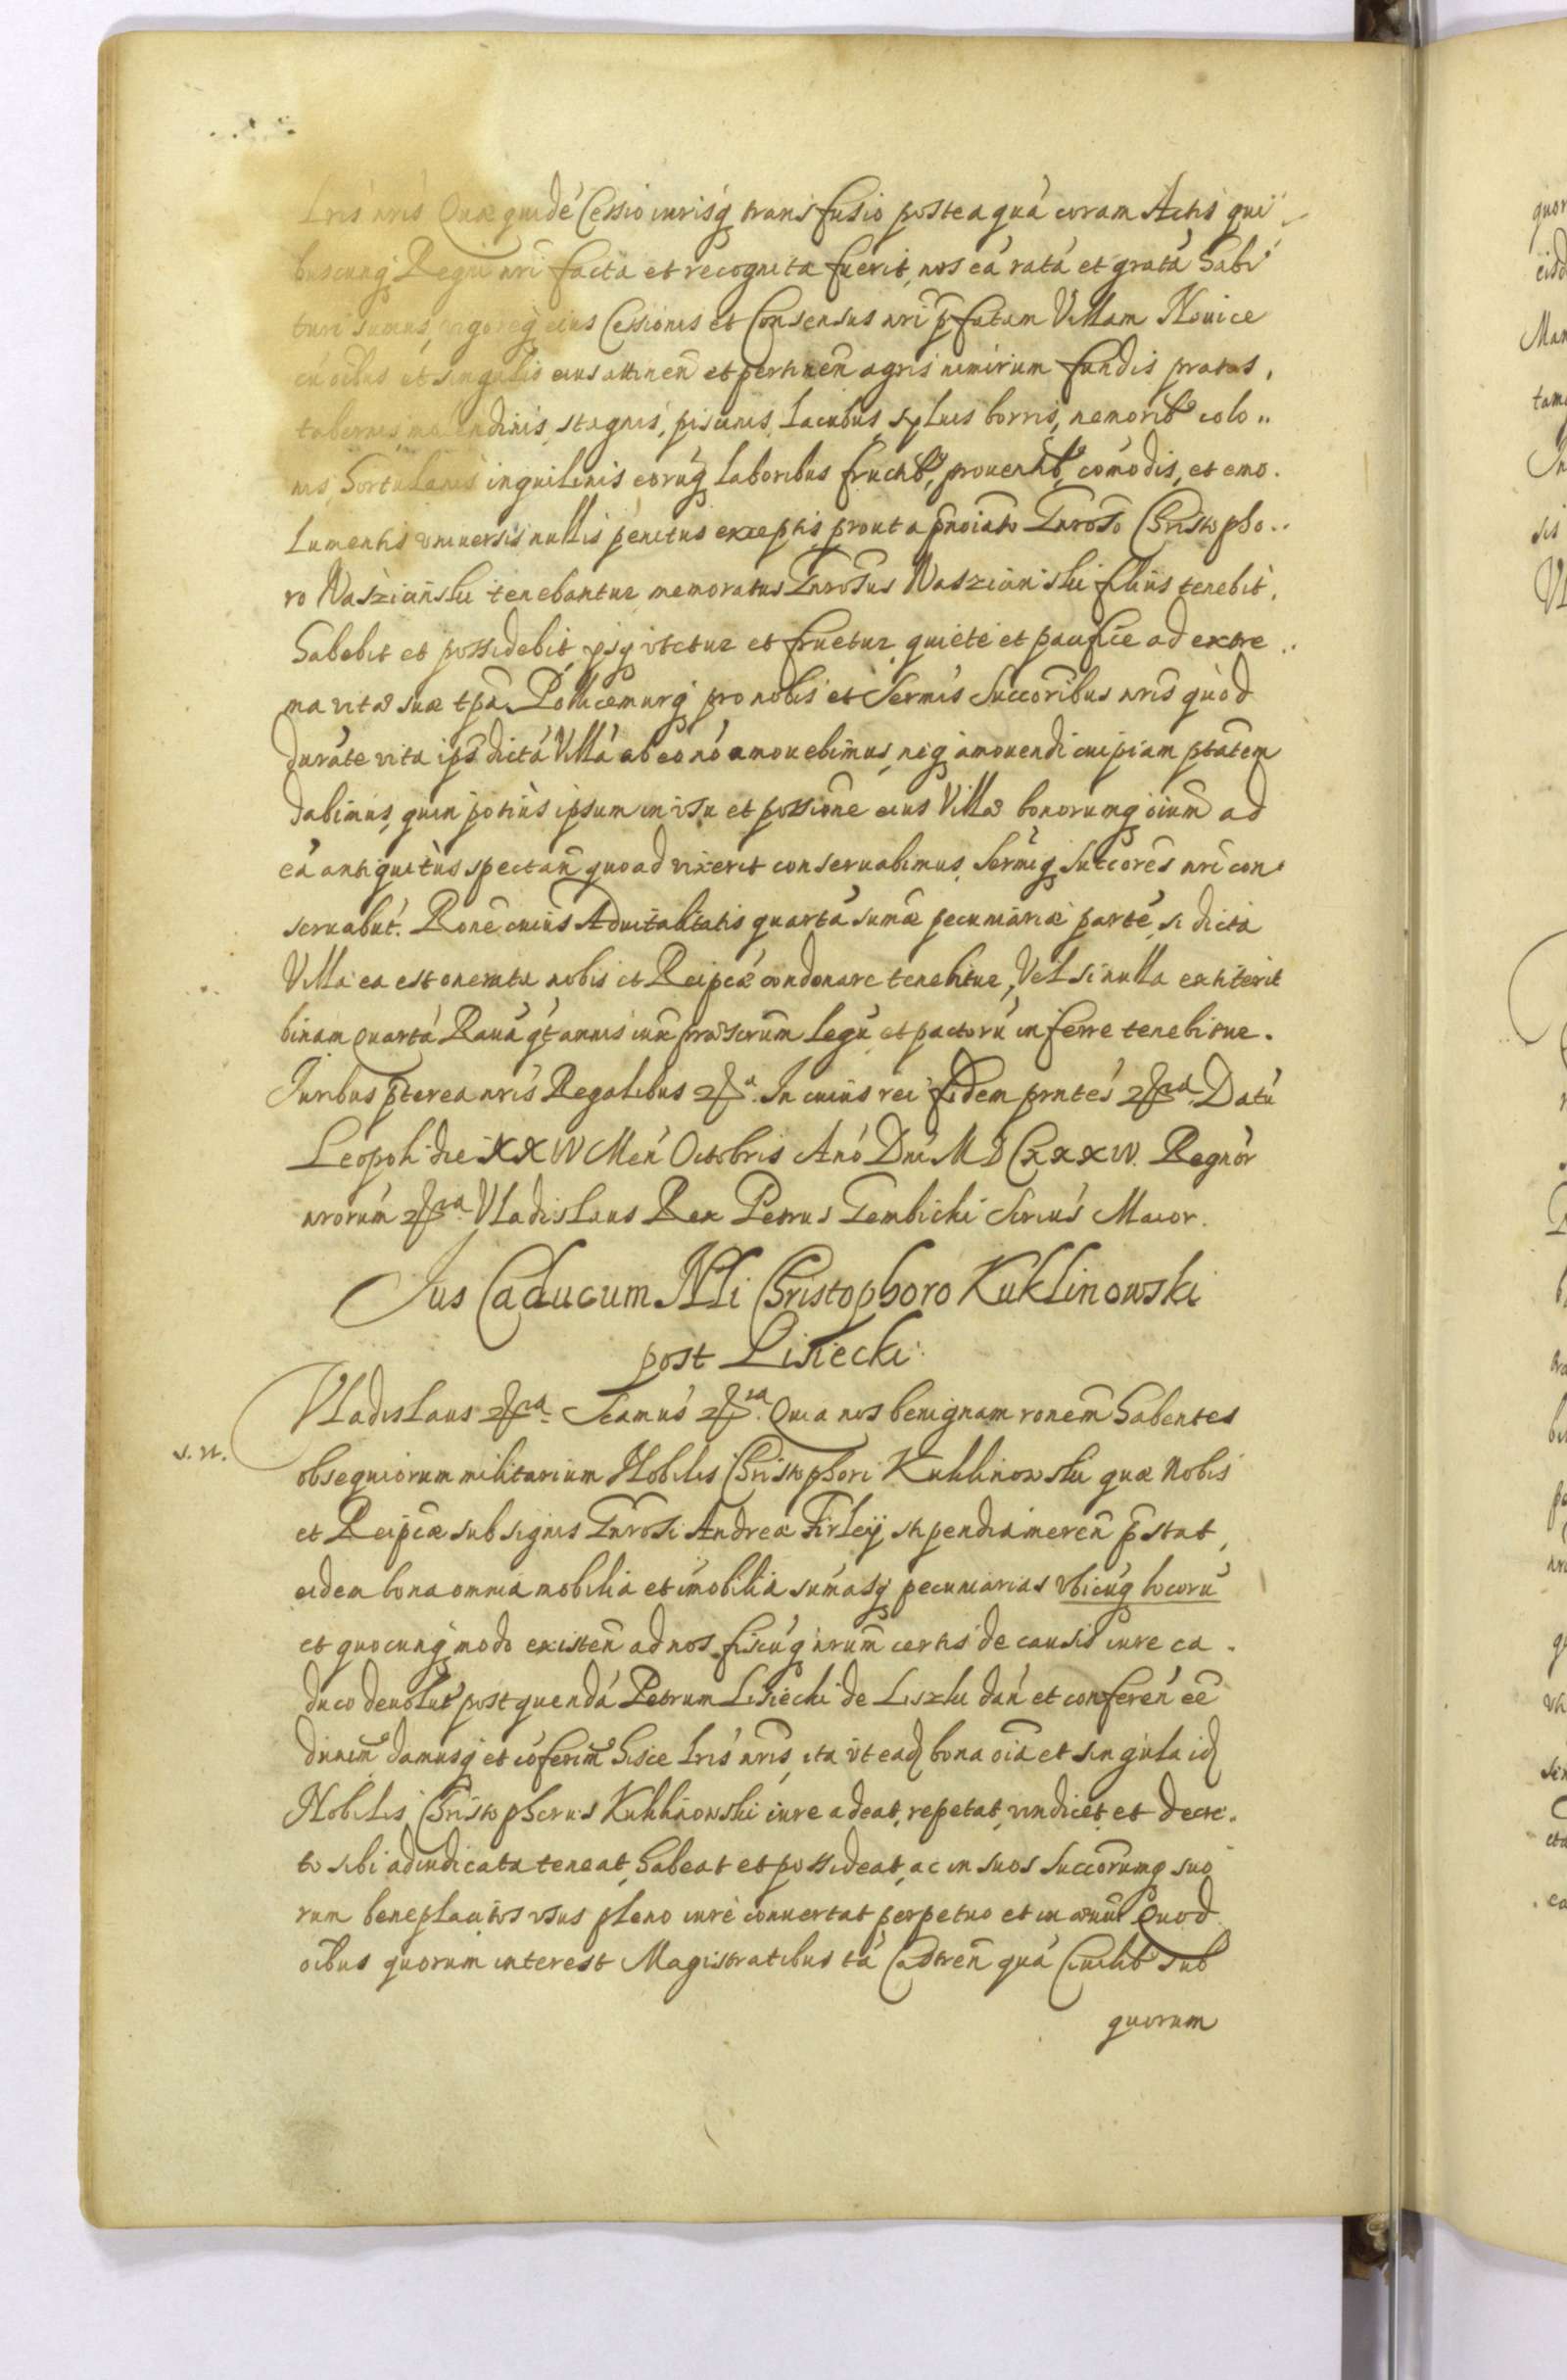 Lrīs nrīs Quæ quidé Cessio iurisq́ transfusio posteaquá coram Actis qui
buscunq́ Regni nrī facta et recognita fuerit, nos eá ratá et gratá habi
turi sumus, vigoreq́ eius Cessionis et Consensus nrī p̄fatam Villam Nouice
cú oībus et singulis eius attinen̄ et pertinen̄ agris nimirum fundis pratis,
tabernis, molendinis, stagnis, piscinis, Lacubus, syluis borris, nemorib9 colo..
nis, hortulanis inquilinis eorúq́ laboribus fructib9, prouentib9, comódis, et emo.
Lumentis vniuersis nullis penitus exceptis prout a p̄noīato Gnroso Christopho..
ro Waszicīnski tenebantur memoratus Gnrosus Waszicinski filius tenebit,
habebit et possidebit, ysq́ vtetur et fruetur quiete et pacifice ad extre..
ma vitæ suæ tp̄a. Pollicemurq́ pro nobis et Serm̄is Succorībus nrīs quod
duráte vita ips̄ dictá Villá ab eo nó amouebimus, neq́ amouendi cuipiam ptātem
dabimus, quin potiùs ipsum in vsu et possione eius Villæ bonorumq́ oium̄ ad
eá antiquitùs spectan̄ quoad vixerit conseruabimus, Serm̄iq́ Succorēs nrī con
seruabút. Rōne cuius Aduitalitatis quartá sum̄æ pecuniariæ parté, si dicta
Villa ea est onerata nobis et Reipcǣ condonare tenebitur, Vel si nulla extiterit
binam quartá Rauá qt́annis iux̄ præscrum̄ Legú et pactorú inferre tenebitur.
Iuribus p̄terea nrīs Regalibus &ca. In cuius rei fidem pr̄ntes &ca. Datú
Leopoli die XXIV Men̄ Octobris Anó Dnī MDCXXXIV. Regnor̄
nrorúm &ca. Vladislaus Rex Petrus Gembicki Secrius̄ Maior.
Jus Caducum Nlli Christophoro Kuklinowski
post Lisiecki.
Vladislaus &ca. Scamús &ca. Quia nos benignam ronem̄ habentes
s. n.
obsequiorum militarium Nobilis Christophori Kuklinowski quæ nobis
et Reipcǣ sub signis Gnrosi Andreæ Firleij stipendia meren̄ p̄stat,
eidem bona omnia mobilia et imóbilia sumásq́ pecuniarias vbicúq́ locorú
et quocunq́ modo existen̄ ad nos fiscúq́ nrum̄ certis de causis iure ca.
duco deuolut́ post quendá Petrum Lisiecki de Liszki dan̄ et conferen̄ eē
duxim9 damusq́ et cóferim9 hisce Lrīs nrīs, ita vt eadꝫ bona oīa et singula idꝫ
Nobilis Christopherus Kuklinowski iure adeat, repetat, vindicet, et decre.
to sibi adiudicata teneat, habeat et possideat, ac in suos Succorumq́ suo
rum beneplacitos vsus pleno iure conuertat perpetuo et in æuum̄ Quod
oībus quorum interest Magistratibus tá Castren̄ quá Ciuilib9 sub
quorum